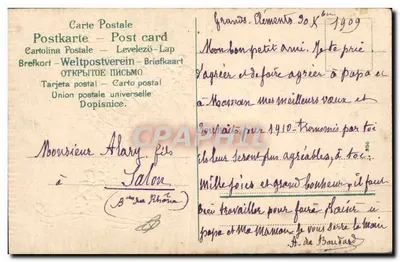 Carte Postale
Postkarte - Post card
Cartolina Postale - Levelező-Lap
Brefkort - Weltpostverein - Briefkaart
ОТКРЫТОЕ ПИСЬМО
Tarjeta postal - Carto postal
Union postale universelle
Dopisnice.
Monsieur Alary fils
à Salon
(Bches du Rhône)
Grans. Clémento 30 Xbre 1909
Mon bon petit ami. Je te prie
d'agréer et de faire agréer à papa et
à Maman mes meilleurs vœux et
souhaits pour 1910. Transmis par toi
ils leur seront plus agréables, à toi
mille joies et grand bonheur, il faut
bien travailler pour faire plaisir à
papa et Ma Maman. Je vous serre la main
A. de
CPA
PHILIA